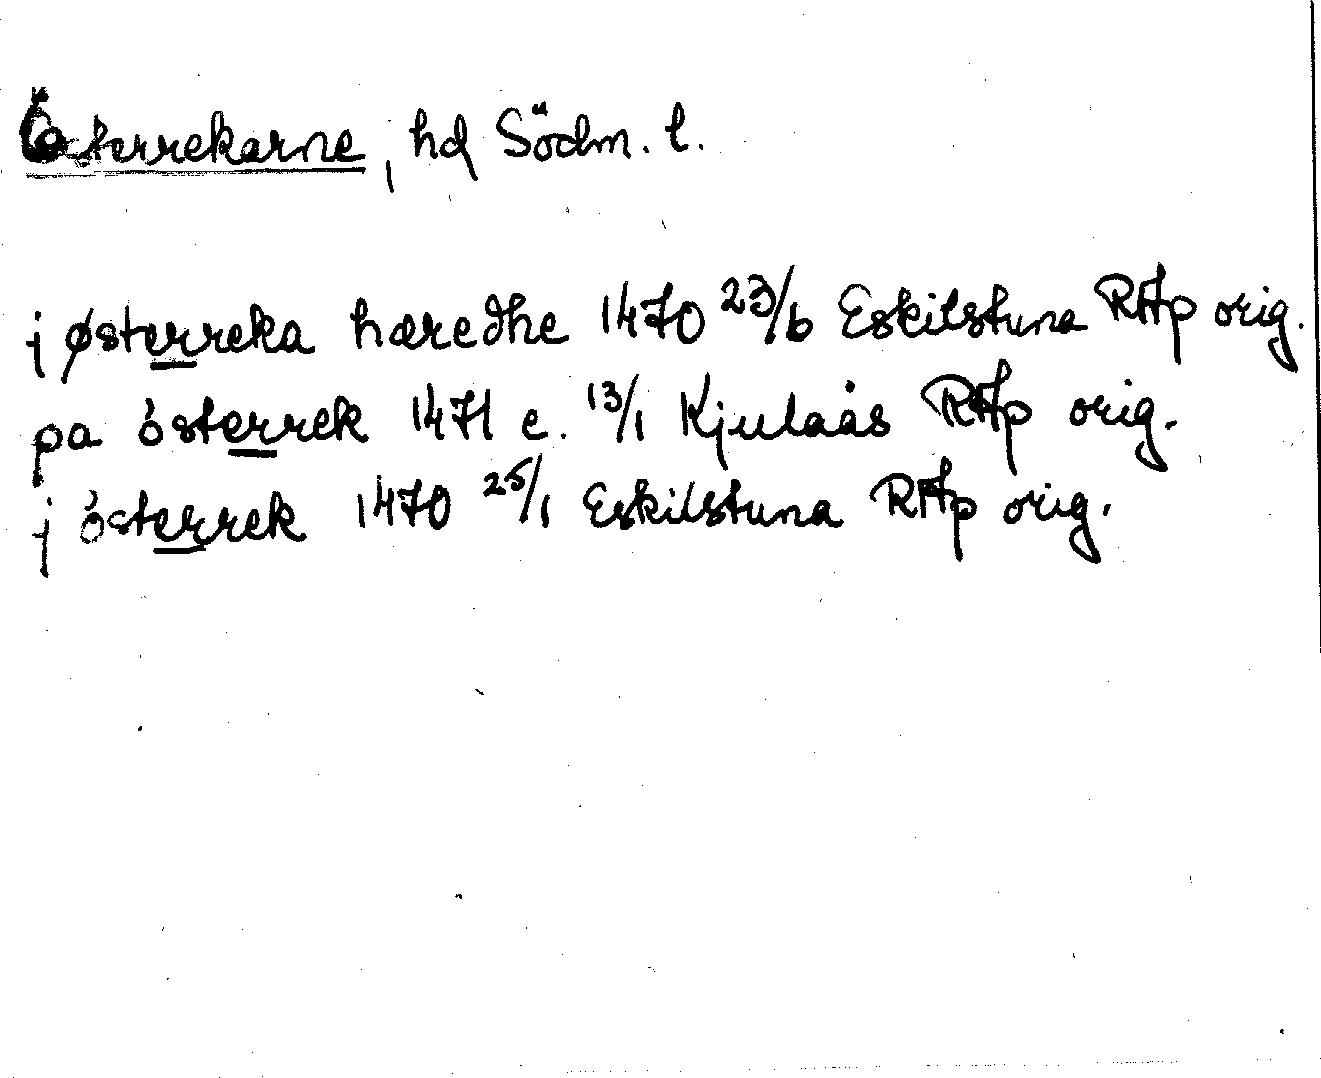 Österrekarne, hd Södm. l.
j østerreka hæredhe 1470 23/6 Eskilstuna RAp orig.
pa ósterrek 1471 e. 13/1 Kjulaås RAp orig.
j ósterrek 1470 25/1 Eskilstuna RAp orig.